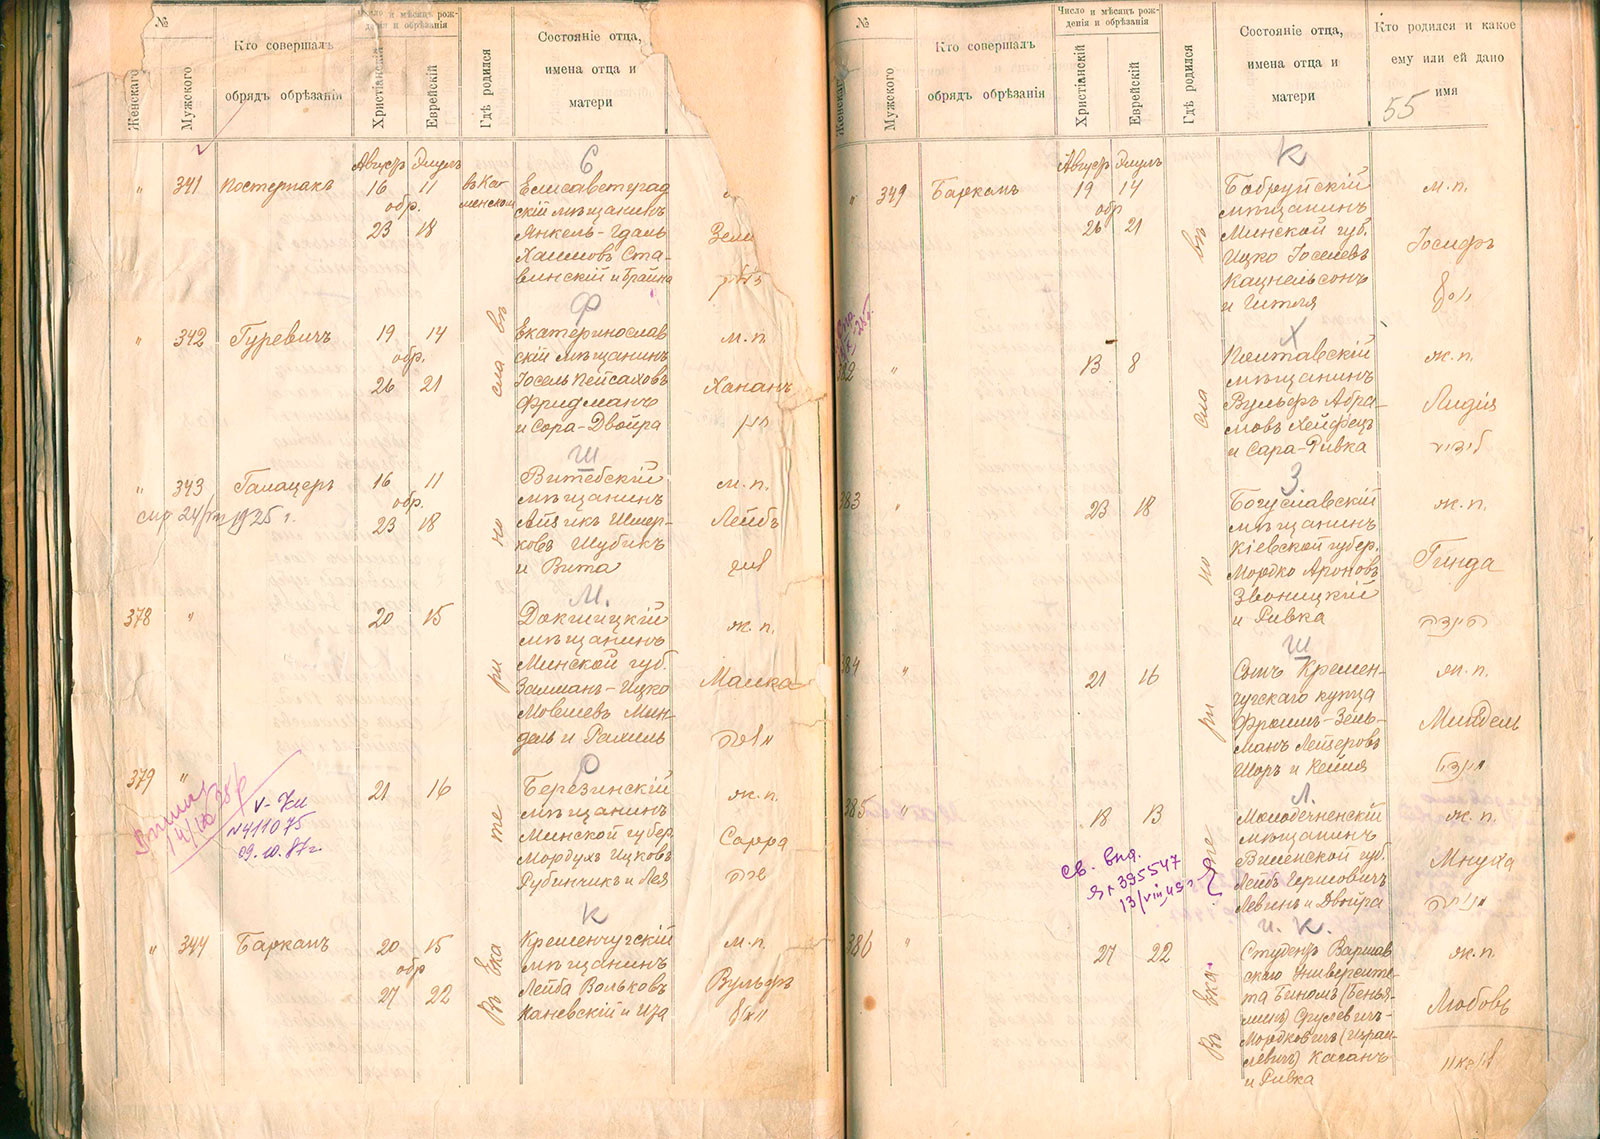 №
Женскаго
Мужского
Кто совершалъ
обрядъ обрѣзанія
Число и мѣсяцъ рож-
денія и обрѣзанія
Христіанскій
Еврейскій
Гдѣ родился
Состояніе отца,
имена отца и
матери
Августъ Элулъ
С
" 341 Постернакъ 16 11
обр.
23 18
въ Ка-
менском
Елисаветград
скій мѣщанинъ
Янкель-Гдаль
Хаимовъ Ста-
винскій и Брайна
Зели
Ф
" 342 Гуревичъ 19 14
обр.
26 21
Екатеринослав
скій мѣщанинъ
Іосель Пейсаховъ
Фридманъ
и Сора-Двойра
м.п.
Хананъ
חנן
Ш
" 343 Галацеръ 16 11
обр.
23 18
1925 г.
Витебскій
мѣщанинъ
Айзикъ Шмер-
ковъ Шубикъ
и Вита
м.п.
Лейбъ
לייב
М.
378 " 20 15
Докшицкій
мѣщанинъ
Минской губ.
Залманъ-Ицко
Мовшевъ Мин-
дель и Рахиль
ж.п.
Малка
מלכה
Р
379 " 21 16
V-Ки
№411075
09.10.87г.
Березинскій
мѣщанинъ
Минской губер.
Мордухъ Ицковъ
Рубинчикъ и Лея
ж.п.
Сарра
שרה
К
" 344 Барканъ 20 15
обр
27 22
Кременчугскій
мѣщанинъ
Лейба Вольковъ
Каневскій и Иза
м.п.
Вульфъ
וואלף
Въ Ека те ри но сла въ
№
Женскаго
Мужского
Кто совершалъ
обрядъ обрѣзанія
Число и мѣсяцъ рож-
денія и обрѣзанія
Христіанскій
Еврейскій
Гдѣ родился
Состояніе отца,
имена отца и
матери
Кто родился и какое
ему или ей дано
имя
55
Августъ Элулъ
К
" 349 Барканъ 19 14
обр
26 21
Бобруйскій
мѣщанинъ
Минской губ.
Ицко Іоселевъ
Кацнельсонъ
и Гитля
м.п.
Іосифъ
יוסף
Х
382 " 13 8
Полтавскій
мѣщанинъ
Вульфъ Абра-
мовъ Хейфецъ
и Сара-Ривка
ж.п.
Лидія
לידיע
З.
383 " 23 18
Богуславскій
мѣщанинъ
Кіевской губер.
Мордко Ароновъ
Звоницкій
и Ривка
ж.п.
Гинда
הינדה
Ш
384 " 21 16
Сынъ Кремен-
чугскаго купца
Фроимъ-Зель-
манъ Лейзеровъ
Шоръ и Кейля
ж.п.
Миндель
Л.
385 " 18 13
св. выд.
Яг 395547
13/VIII 49г
Молодечненскій
мѣщанинъ
Виленской губ.
Лейбъ Герцовичъ
Левинъ и Двойра
ж.п.
Мнуха
מנוחה
и. К.
386 " 27 22
Студентъ Варшав
скаго Университе-
та Биномъ (Бенья-
минъ) Срулевичъ-
Мордковичъ (Израи
левичъ) Каганъ
и Ривка
ж.п.
Любовь
Въ Ека- те ри но сла въ